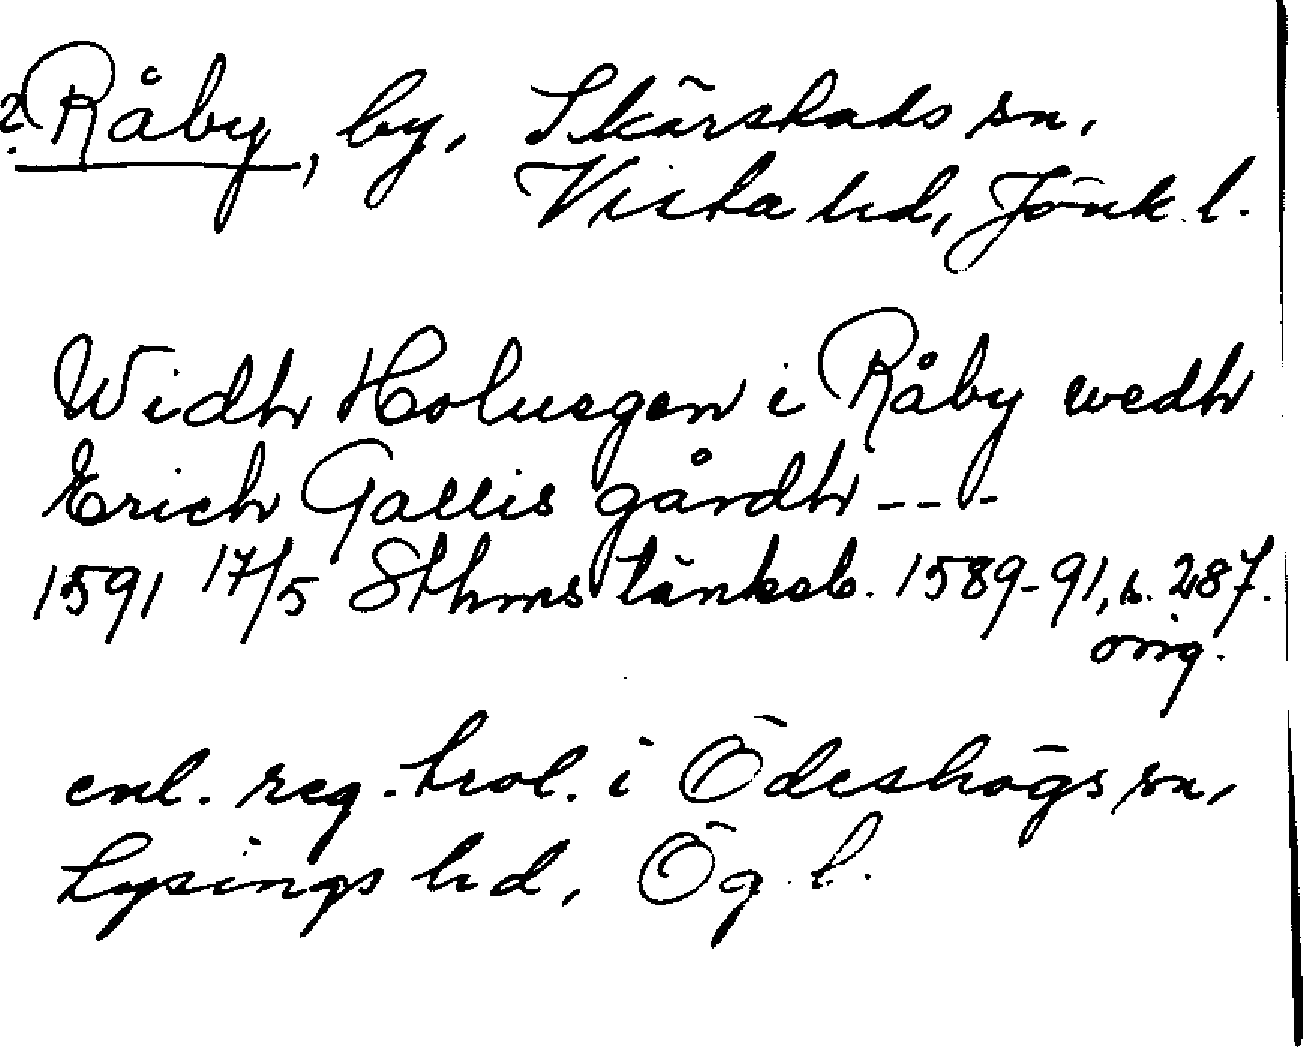 ? Råby, by, Skärstads sn,
Vista hd, Jönk. l.
Widh Holuegen i Råby wedh
Erich Gallis gårdh ---
1591 17/5 Sthms tänkeb. 1589-91, s. 287.
orig.
enl. reg. trol. i Ödeshögs sn,
Lysings hd, Ög. l.